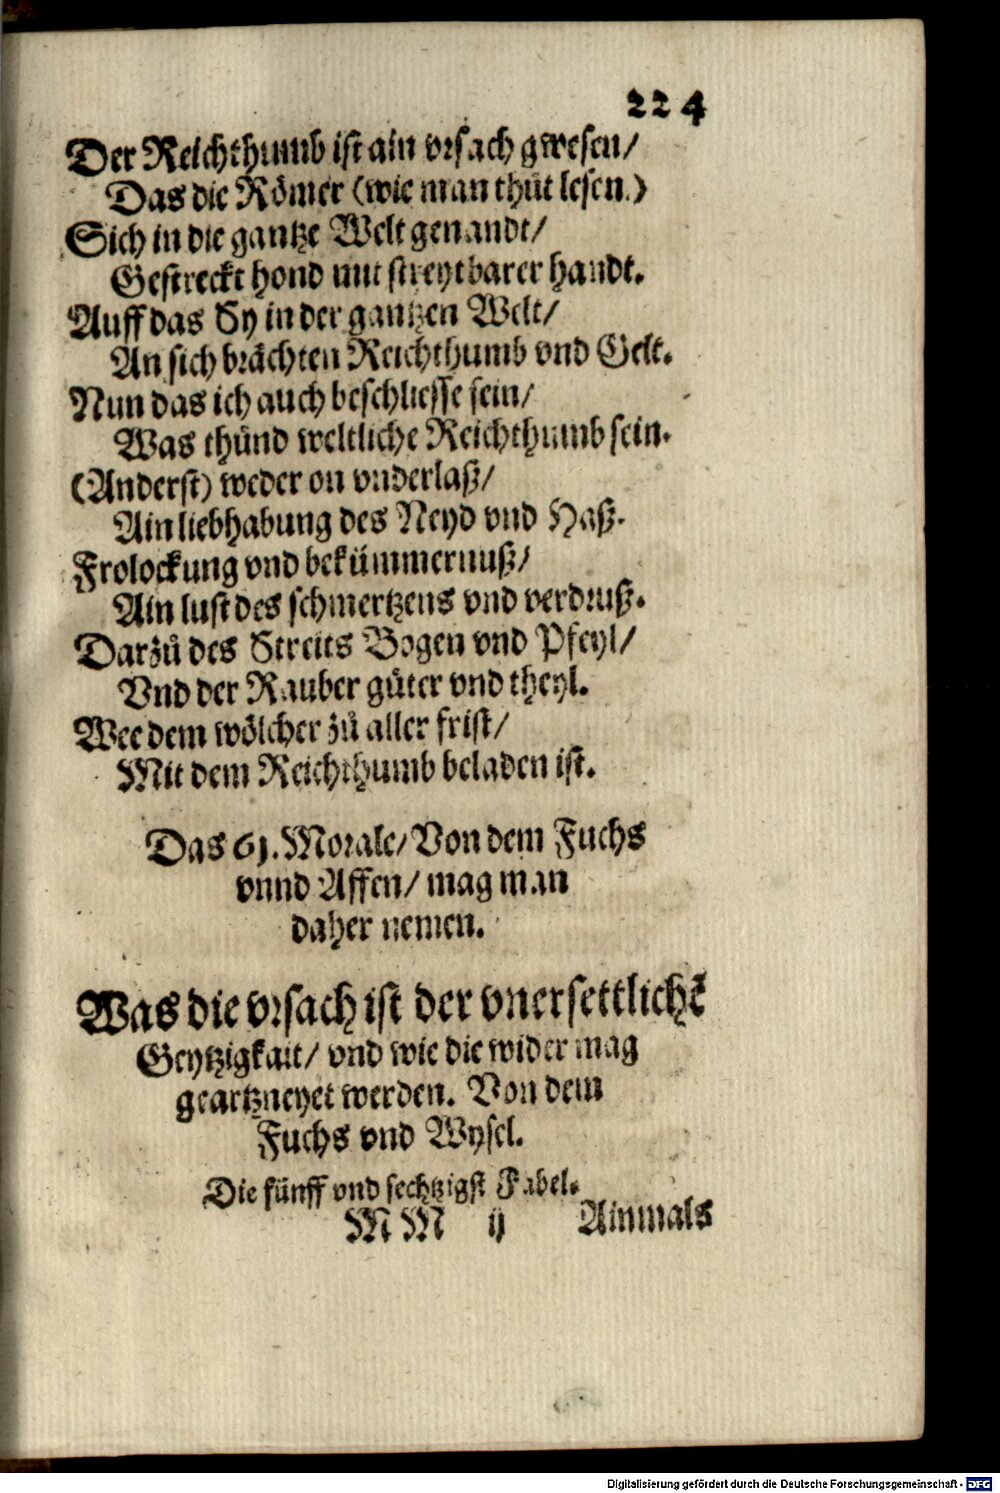 224
Der Reichthumb ist ain vrsach gwesen/
Das die Römer (wie man thůt lesen.)
Sich in die gantze Welt genandt/
Gestreckt hond mit streytbarer handt.
Auff das Sy in der gantzen Welt/
An sich brächten Reichthumb vnd Gelt.
Nun das ich auch beschliesse fein/
Was thůnd weltliche Reichthumb sein.
(Anderst) weder on vnderlaß/
Ain liebhabung des Neyd vnd Haß.
Frolockung vnd bekümmernuß/
Ain lust des schmertzens vnd verdruß.
Darzů des Streits Bogen vnd Pfeyl/
Vnd der Rauber gůter vnd theyl.
Wee dem wölcher zů aller frist/
Mit dem Reichthumb beladen ist.
Das 61. Morale/ Von dem Fuchs
vnnd Affen/ mag man
daher nemen.
Was die vrsach ist der vnersettlichẽ
Geytzigkait/ vnd wie die wider mag
geartzneyet werden. Von dem
Fuchs vnd Wysel.
Die fünff vnd sechtzigst Fabel.
MM ij Ainmals
Digitalisierung gefördert durch die Deutsche Forschungsgemeinschaft - DFG